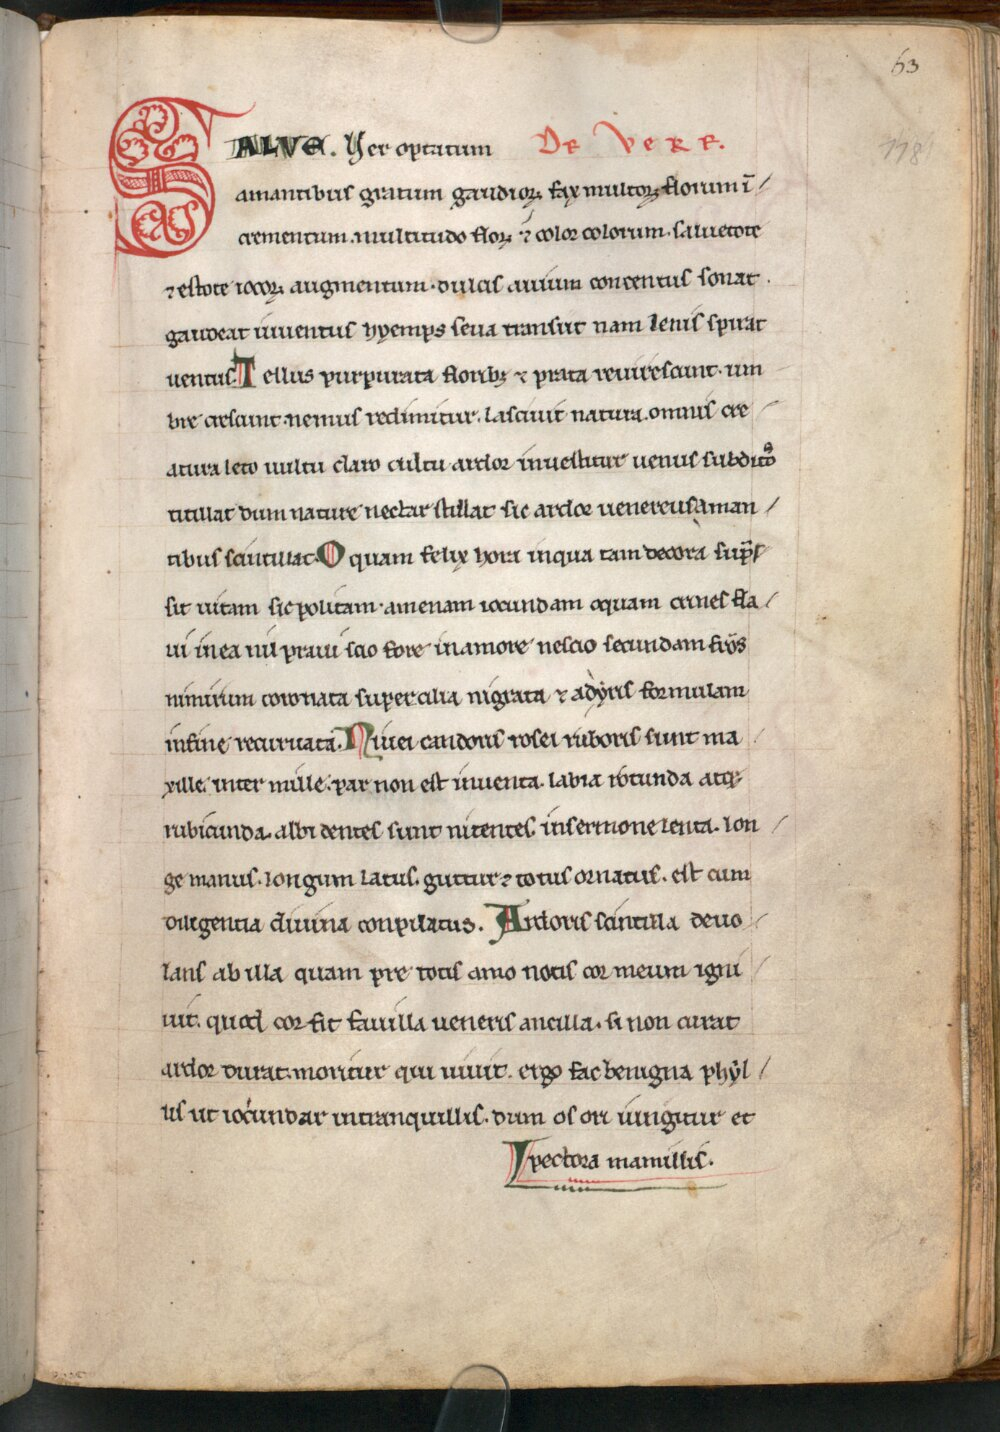 63
SALVE. Ver optatum De Vere.
118
amantibus gratum gaudioꝝ fax multoꝝ florum ī
crementum. multitudo floꝝ ⁊ color colorum. saluetote
⁊ estote iocoꝝ augmentum. dulcis auium concentus sonat.
gaudeat iuuentus hyemps seua transiit nam lenis spirat
uentus. Tellus purpurata floribꝫ ⁊ prata reuirescunt. um
bre crescunt. nemus redimitur. lasciuit natura. omnis cre
atura leto uultu claro cultu ardor inuestitur uenus subditꝯ
titillat dum nature nectar stillat sic ardor uenereus aman
tibus scintillat. O quam felix hora in qua tam decora sūp
sit uitam sic politam. amenam iocundam oquam crines fla
ui in ea nil praui scio fore in amore nescio secundam
nimirum coronata supercilia nigrata ⁊ ad yris formulam
in fine recuruata. Niuei candoris rosei ruboris sunt ma
xille. inter mille. par non est inuenta. labia rotunda atqꝫ
rubicunda. albi dentes sunt nitentes in sermone lenta. lon
ge manus. longum latus. guttur ⁊ totus ornatus. est cum
diligentia diuina conpilatus. Ardoris scintilla deuo
lans ab illa quam pre totis amo notis cor meum igni
uit. quod cor fit fauilla ueneris ancilla. si non curat
ardor durat. moritur qui uiuit. ergo fac benigna phyl
lis ut iocundar in tranquillis. dum os ori iungitur et
pectora mamillis.